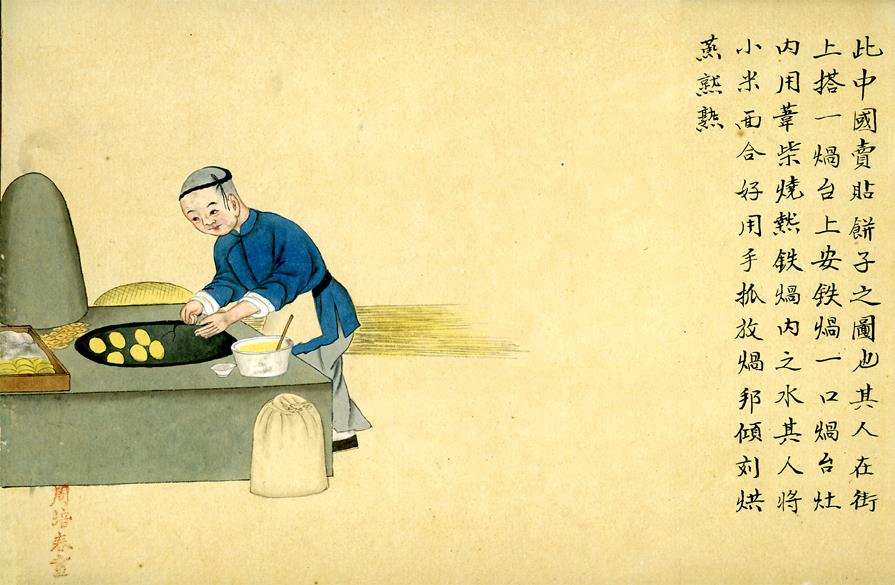 此中國賣貼餅子之圖也其人在街
上搭一煱台上安鉄煱一口煱台灶
内用葦柴燒熱鉄煱内之水其人将
小米面合好用手抓放煱邦傾刻烘
蒸熱熟
周培春畫